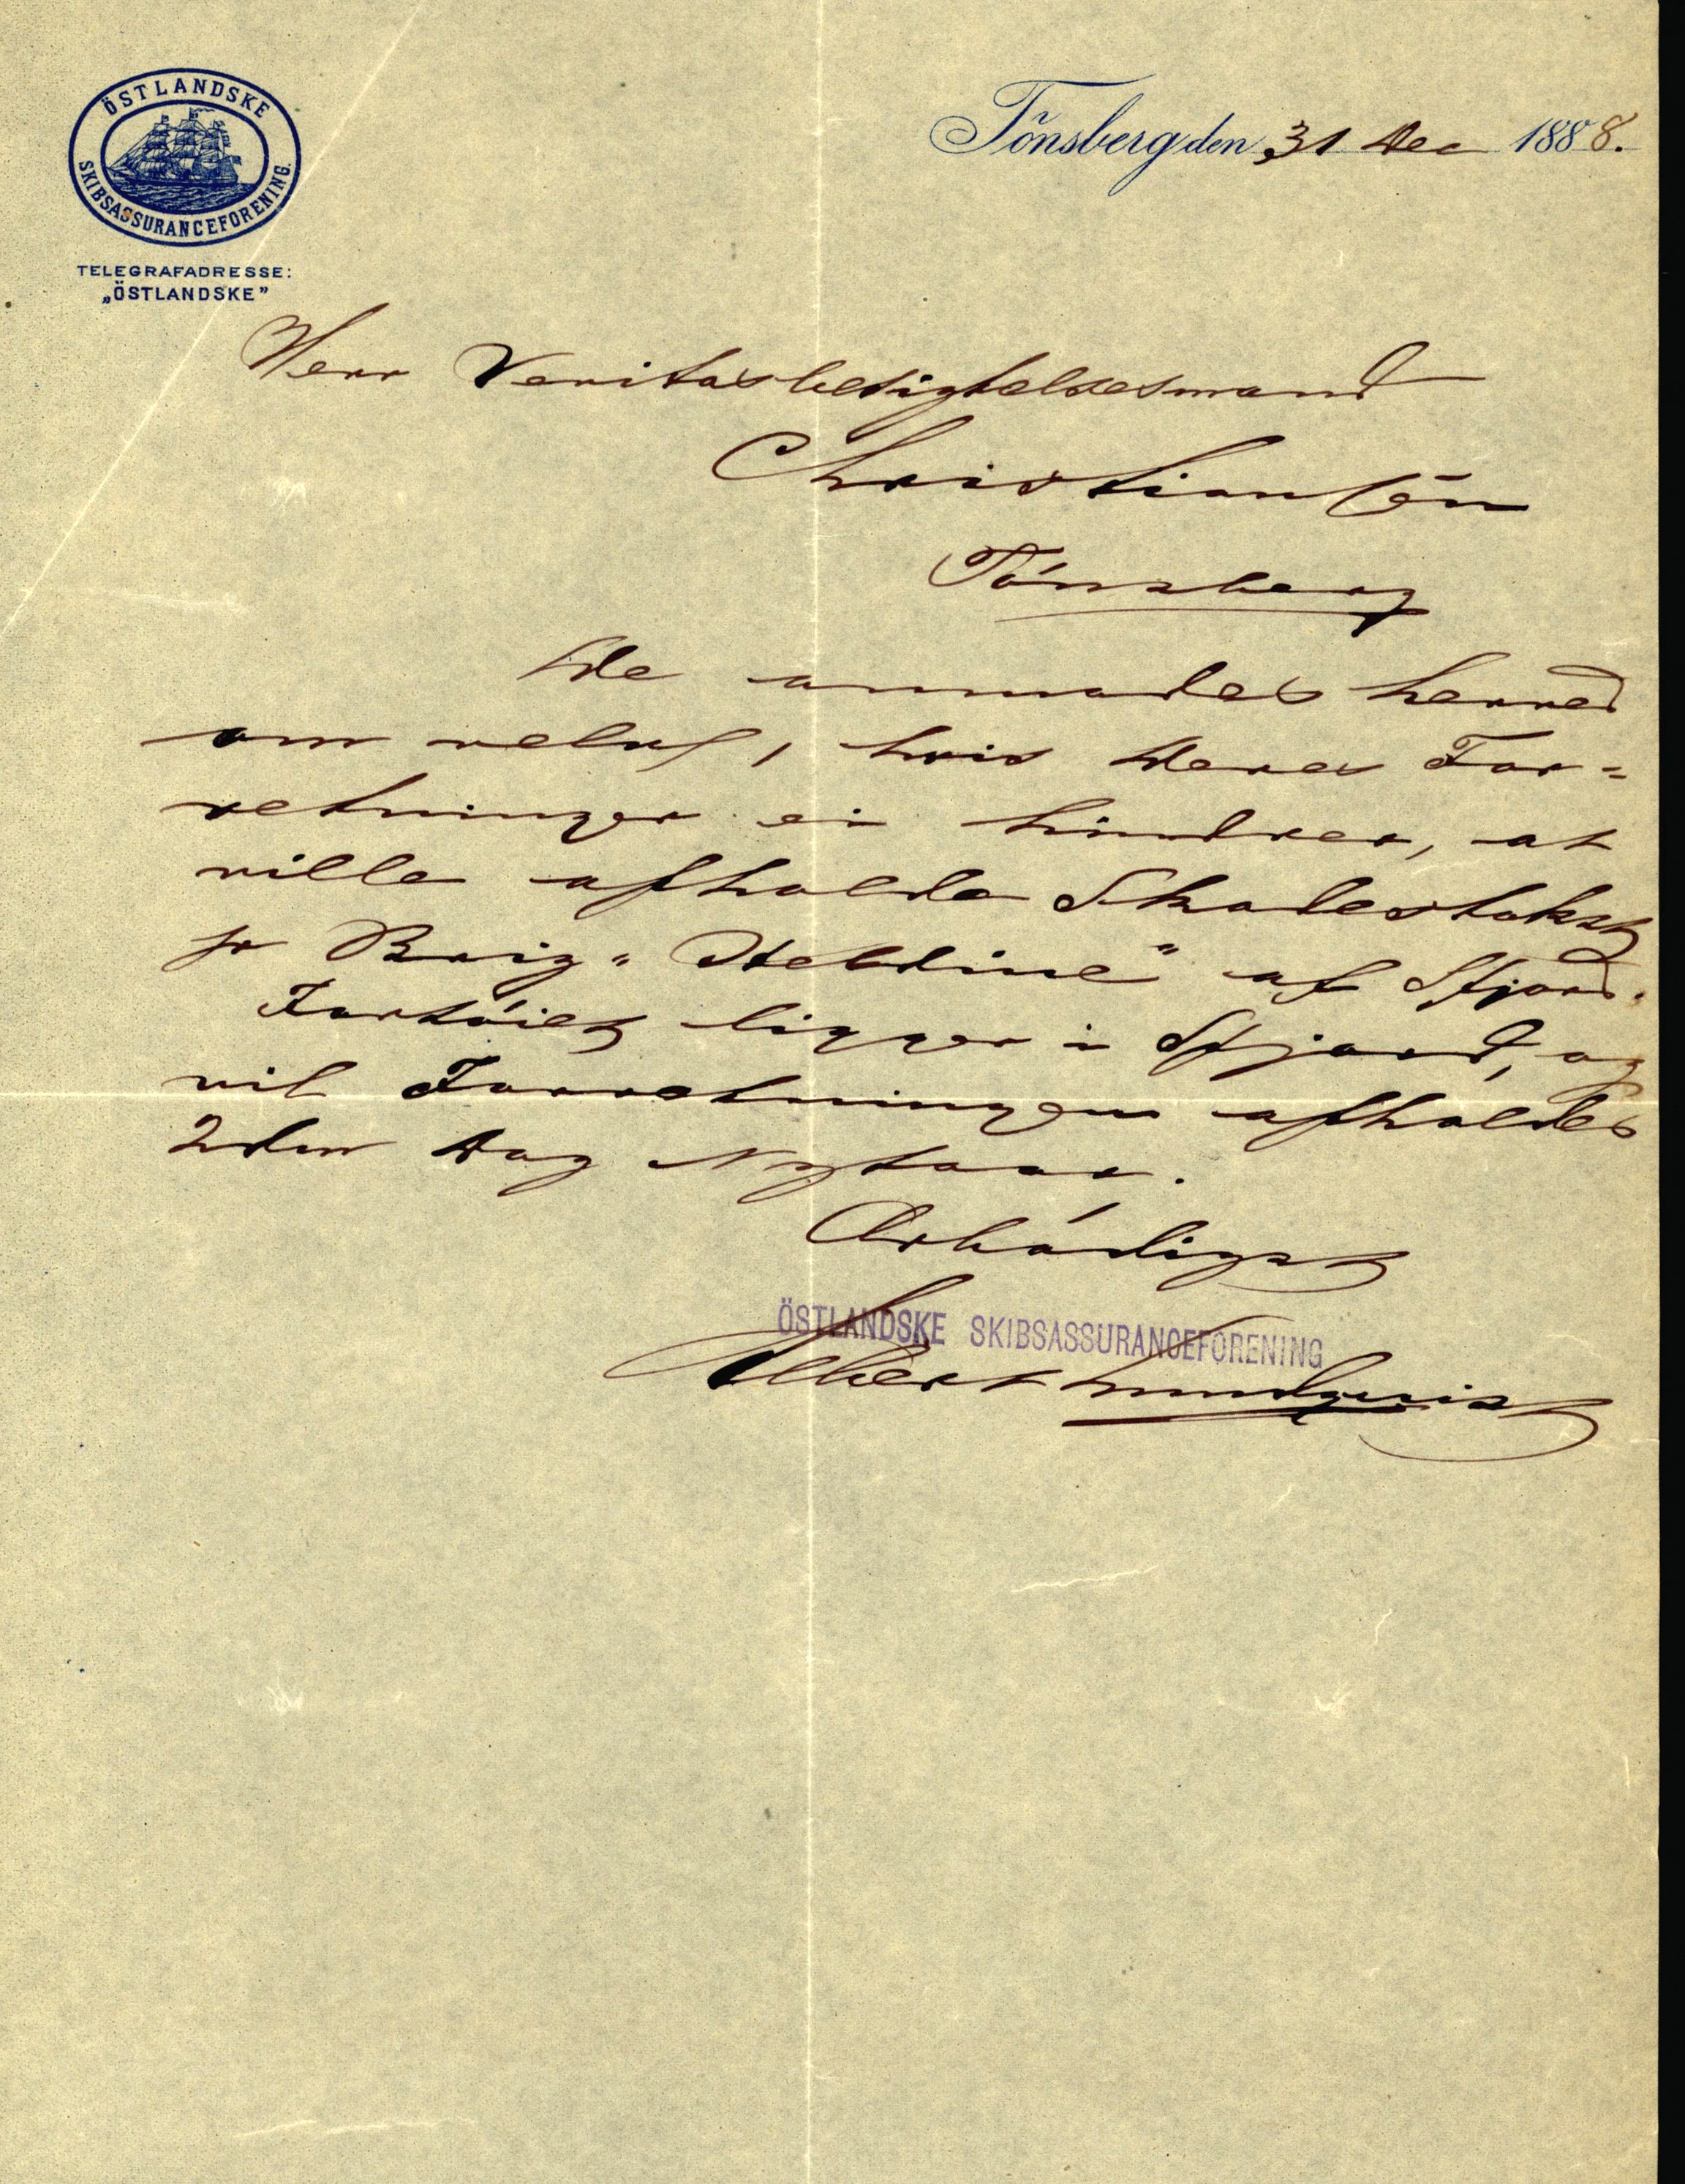 ÖSTLANDSKE
SKIBSASSURANCEFORENING.
TELEGRAFADRESSE:
„ÖSTLANDSKE”
Tönsberg den 31 Dec 1888.
Herr Veritasbesigtelsesmand
Christiansen
Tönsberg
De anmodes herved
om velvl, hvis Deres For=
retninger ei hindrer, at
ville afholde Skadestakst
pr Brig "Heldine" af Sfjord.
Fartöiet ligger i Sfjord, og
vil Forretningen afholdes
2den Dag Nytaar.
Ærbödigst
ÖSTLANDSKE SKIBSASSURANCEFORENING
Albert Lundqvist